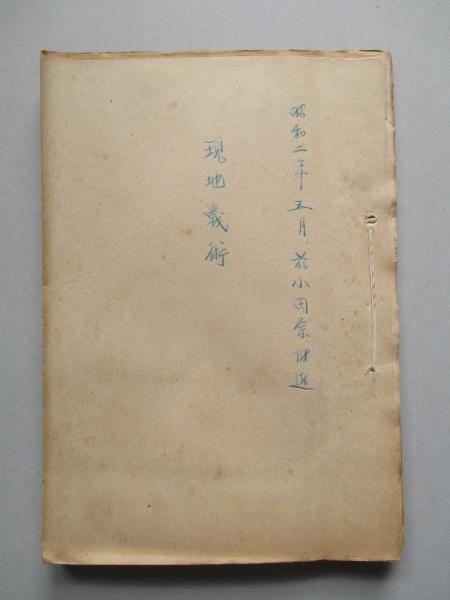 昭和二年五月 於小田原附近
現地戦術